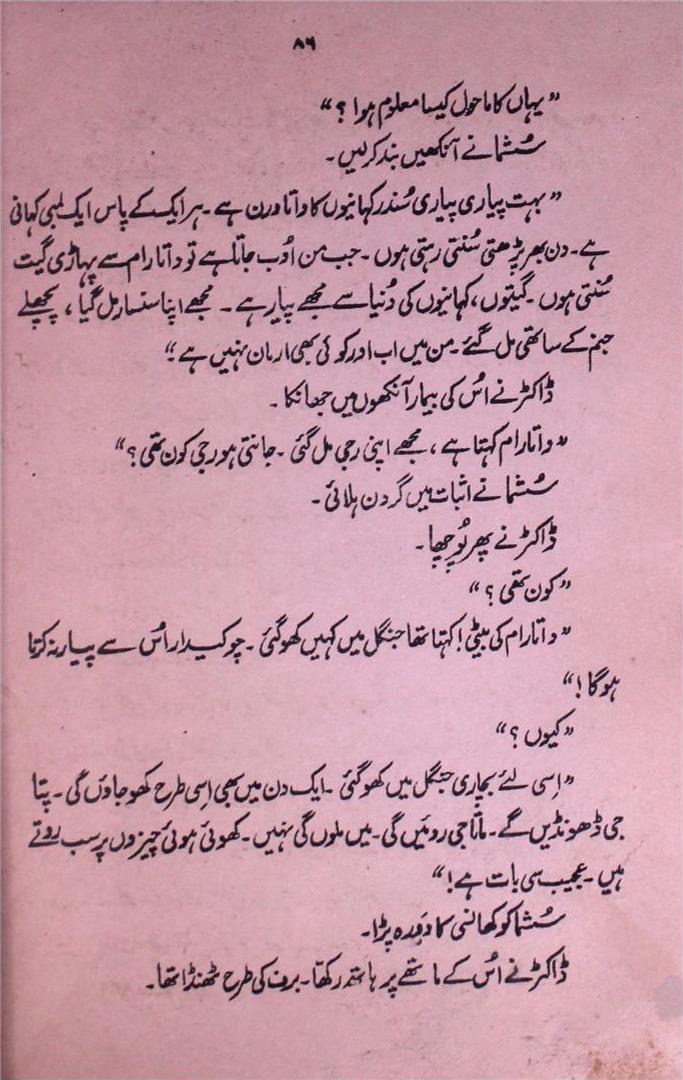 ۸۶
”یہاں کا ماحول کیسا معلوم ہوا ؟“
سُشما نے آنکھیں بند کر لیں ۔
”بہت پیاری پیاری سُندر کہانیوں کا واتاورن ہے ۔ ہر ایک کے پاس ایک لمبی کہانی
ہے ۔ دن بھر پڑھتی سُنتی رہتی ہوں ۔ جب من اُوب جاتا ہے تو داتا رام سے پہاڑی گیت
سُنتی ہوں ۔ گیتوں ، کہانیوں کی دُنیا سے مجھے پیار ہے ۔ مجھے اپنا سنسار مل گیا ، پچھلے
جنم کے ساتھی مل گئے ۔ من میں اب اور کوئی بھی ارمان نہیں ہے “
ڈاکٹر نے اُس کی بیمار آنکھوں میں جھانکا ۔
”داتا رام کہتا ہے ، مجھے اپنی رجی مل گئی ۔ جانتی ہو رجی کون تھی ؟“
سُشما نے اثبات میں گردن ہلائی ۔
ڈاکٹر نے پھر پُوچھا ۔
”کون تھی ؟“
”داتا رام کی بیٹی ! کہتا تھا جنگل میں کہیں کھو گئی ۔ چوکیدار اُس سے پیار نہ کرتا
ہو گا !“
”کیوں ؟“
”اِسی لئے بچاری جنگل میں کھو گئی ۔ ایک دن میں بھی اِسی طرح کھو جاؤں گی ۔ پِتا
جی ڈھونڈیں گے ۔ ماتا جی روئیں گی ۔ میں ملوں گی نہیں ۔ کھوئی ہوئی چیزوں پر سب روتے
ہیں ۔ عجیب سی بات ہے !“
سُشما کو کھانسی کا دَورہ پڑا ۔
ڈاکٹر نے اُس کے ماتھے پر ہاتھ رکھا ۔ برف کی طرح ٹھنڈا تھا ۔